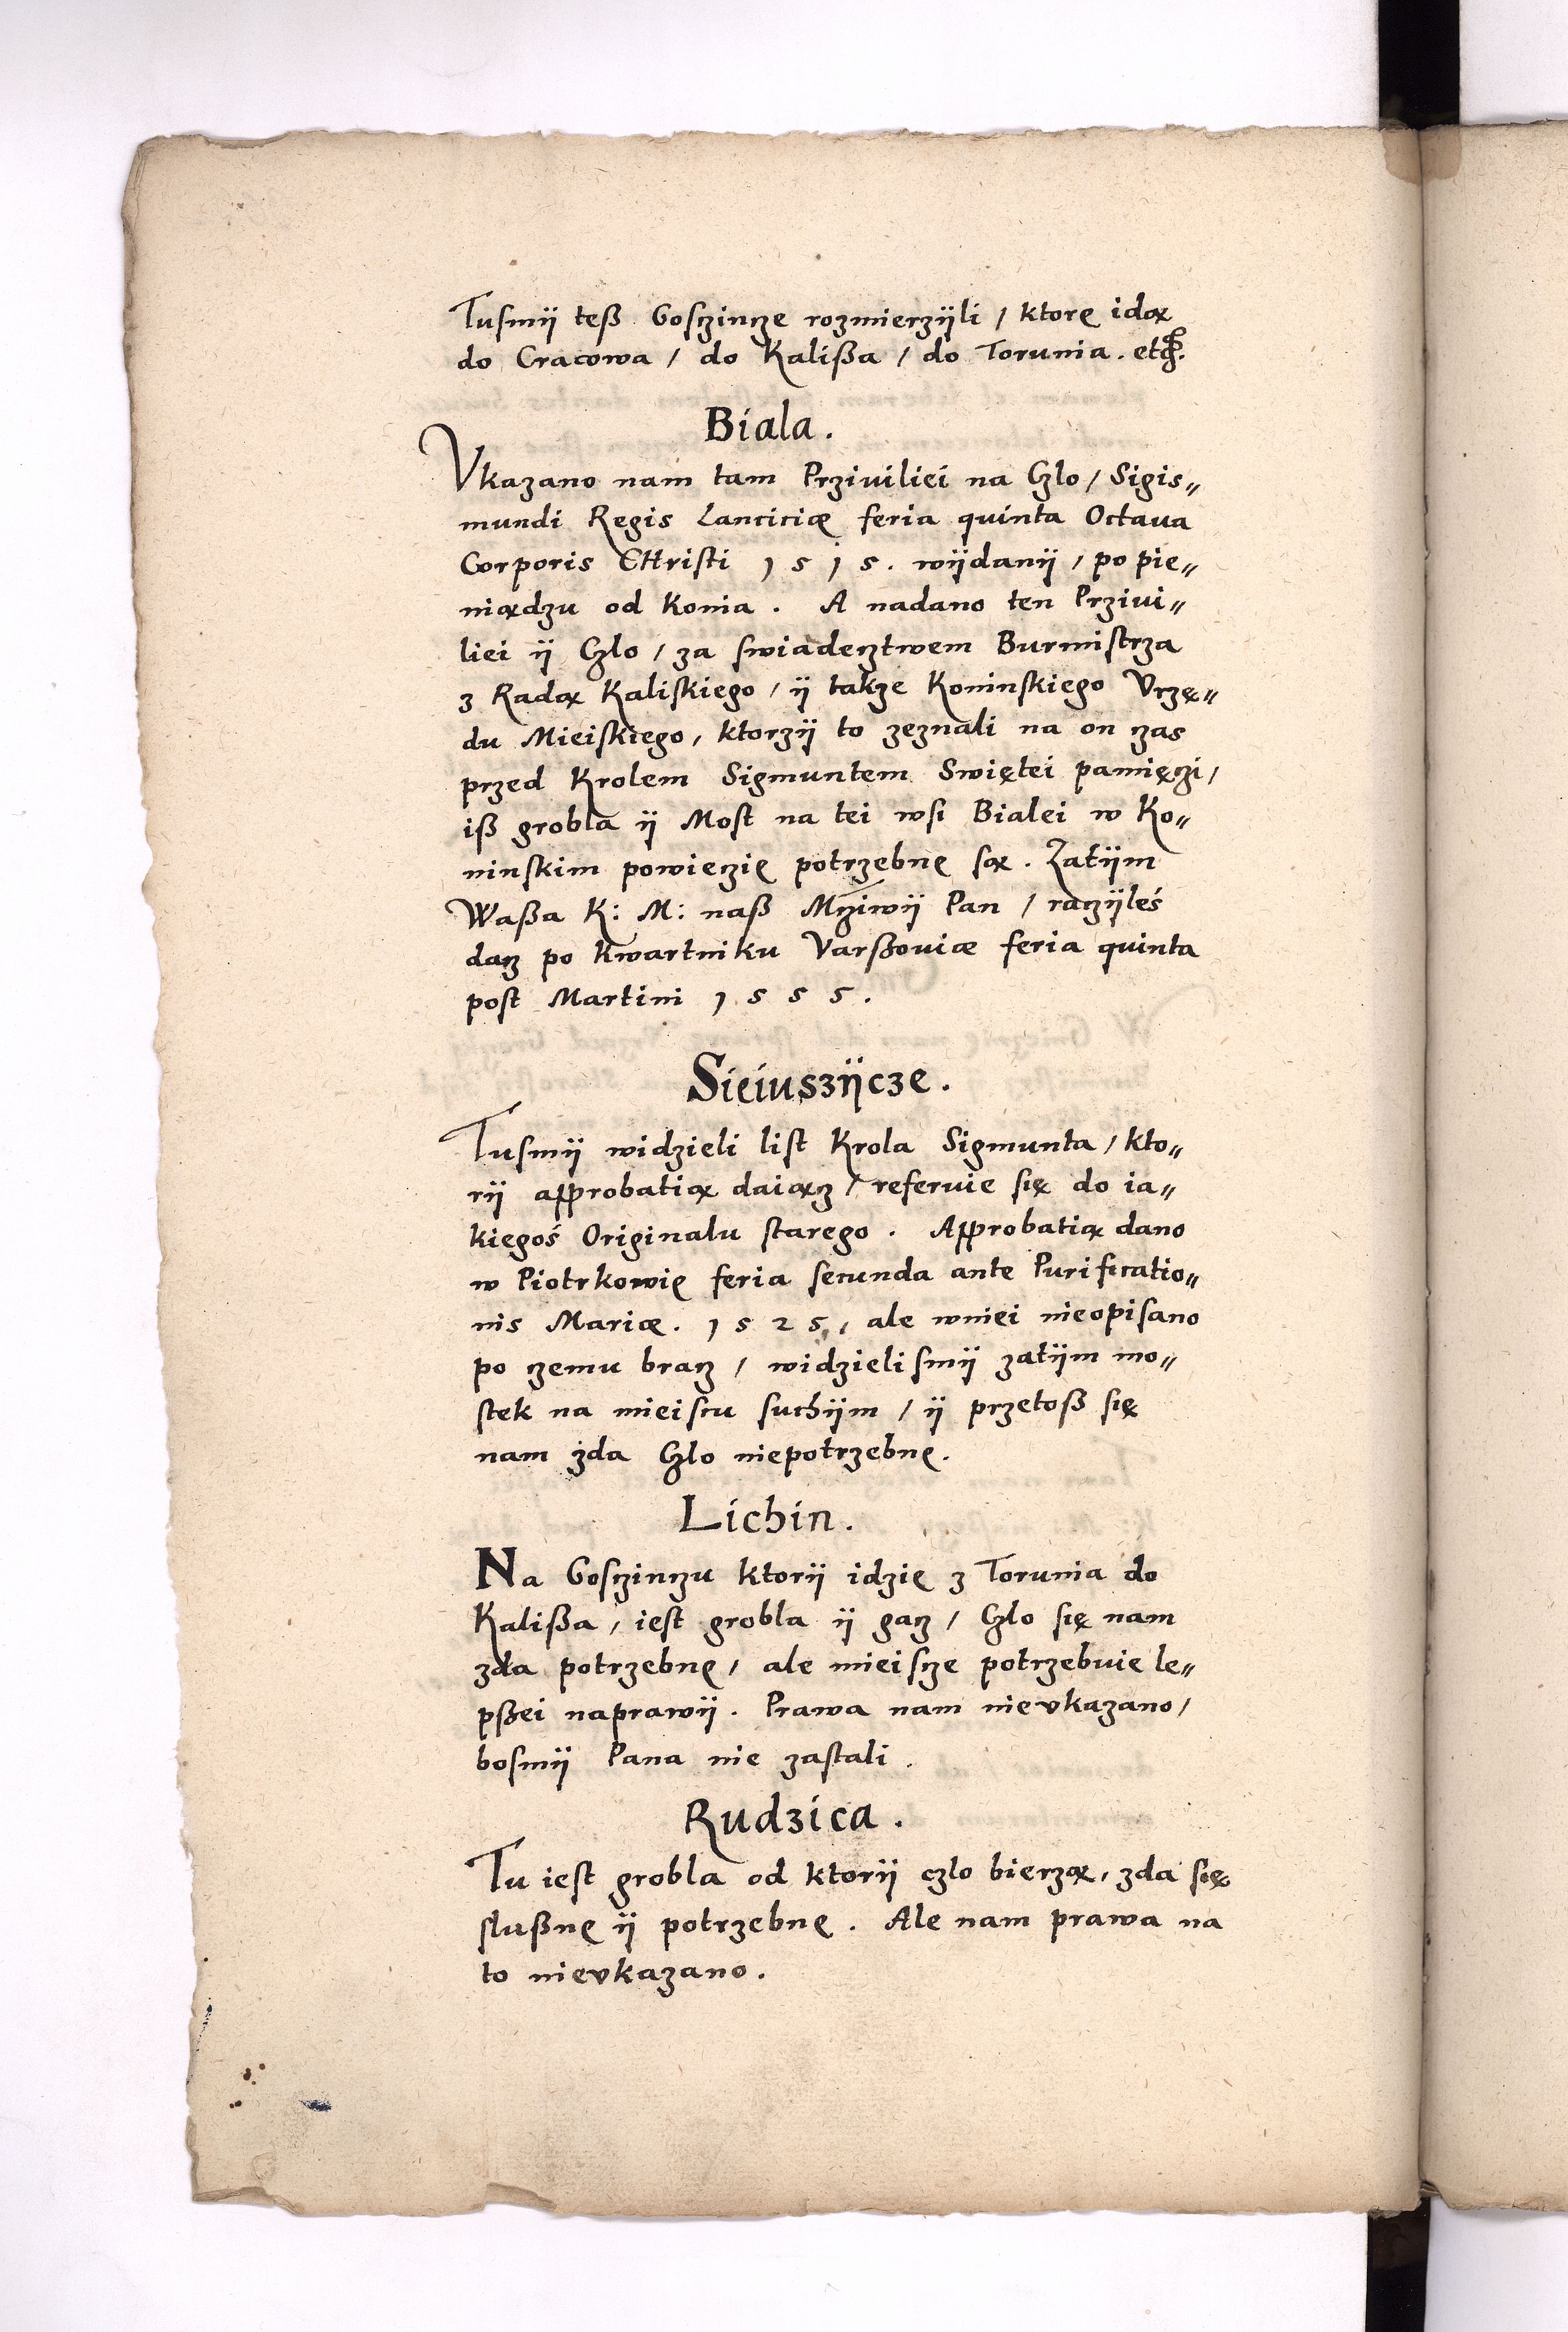 Tusmÿ teß Gosczincze rozmierzÿli / ktorę idą
do Cracowa / do Kalißa / do Torunia. etc.
Biala.
Vkazano nam tam Prziviliei na Czlo / Sigis„
mundi Regis Lanciciæ feria quinta Octava
Corporis CHristi 1515. wÿdanÿ / po pie„
niądzu od Konia. A nadano ten Przivi„
liei ÿ Czlo / za swiadecztwem Burmistrza
z Radą Kaliskiego / ÿ takze Koninskiego Vrzę„
du Mieiskiego, ktorzÿ to zeznali na on czas
przed Krolem Sigmuntem Swiętei pamięczi /
iß grobla ÿ Most na tei wsi Bialei w Ko„
ninskim powieczię potrzebnę są. Zatÿm
Waßa K: M: naß Mcziwÿ Pan / raczÿleś
dacz po kwartniku Varßoviæ feria quinta
post Martini 1555.
Sieiuszÿcze.
Tusmÿ widzieli list Krola Sigmunta / kto„
rÿ approbatią daiącz / referuie się do ia„
kiegoś Originalu starego. Approbatią dano
w Piotrkowię feria secunda ante Purificatio„
nis Mariæ. 1525, ale wniei nieopisano
po czemu bracz / widzielismÿ zatÿm mo„
stek na mieiscu suchÿm / ÿ przetoß się
nam żda Czlo niepotrzebnę.
Lichin.
Na Gosczinczu ktorÿ idzię z Torunia do
Kalißa, iest grobla ÿ gacz / Czlo się nam
zda potrzebnę, ale mieiscze potrzebuie le„
pßei naprawÿ. Prawa nam nievkazano /
bosmÿ Pana nie zastali.
Rudzica.
Tu iest grobla od ktorÿ czlo bierzą, zda się
slußnę ÿ potrzebnę. Ale nam prawa na
to nievkazano.